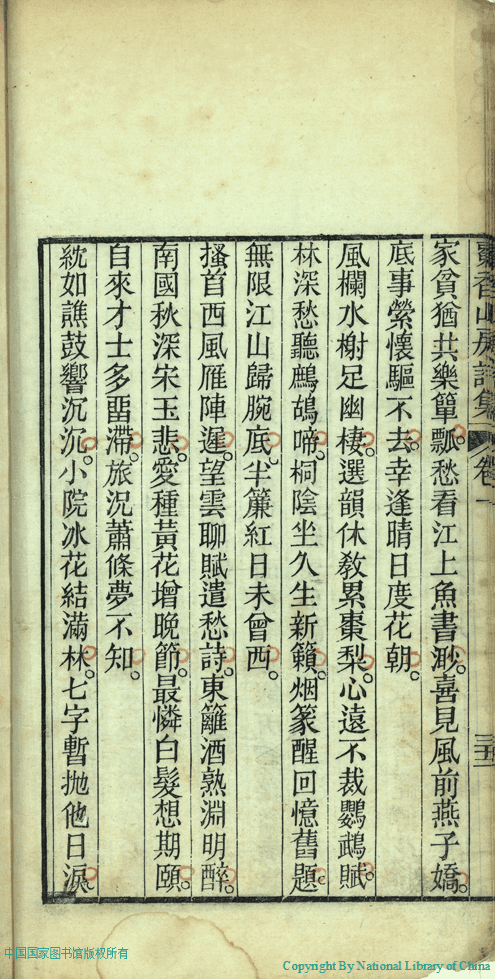 香山房詩集 卷一
家貧猶共樂簞瓢。愁看江上魚書渺。喜見風前燕子嬌。
底事縈懷驅不去。幸逢晴日度花朝。
風欄水榭足幽棲。選韻休教累棗梨。心遠不裁鸚鵡賦。
林深愁聽鷓鴣啼。桐陰坐久生新籟。烟篆醒回憶舊題。
無限江山歸腕底。半簾紅日未曾西。
搔首西風雁陣遲。望雲聊賦遣愁詩。東籬酒熟淵明醉。
南國秋深宋玉悲。愛種黃花增晚節。最憐白髮想期頤。
自來才士多畱滯。旅況蕭條夢不知。
紞如譙鼓響沉沉。小院冰花結滿林。七字暫抛他日淚。
中国国家图书馆版权所有
Copyright By National Library of China